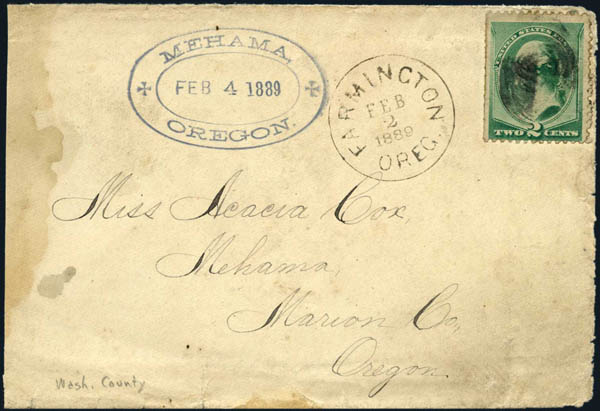 MEHAMA,
FEB 4 1889
OREGON.
FARMINGTON
FEB
2
1889
OREG.
UNITED STATES
TWO 2 CENTS
Miss Acacia Cox,
Mehama,
Marion Co,
Oregon.
Wash. County